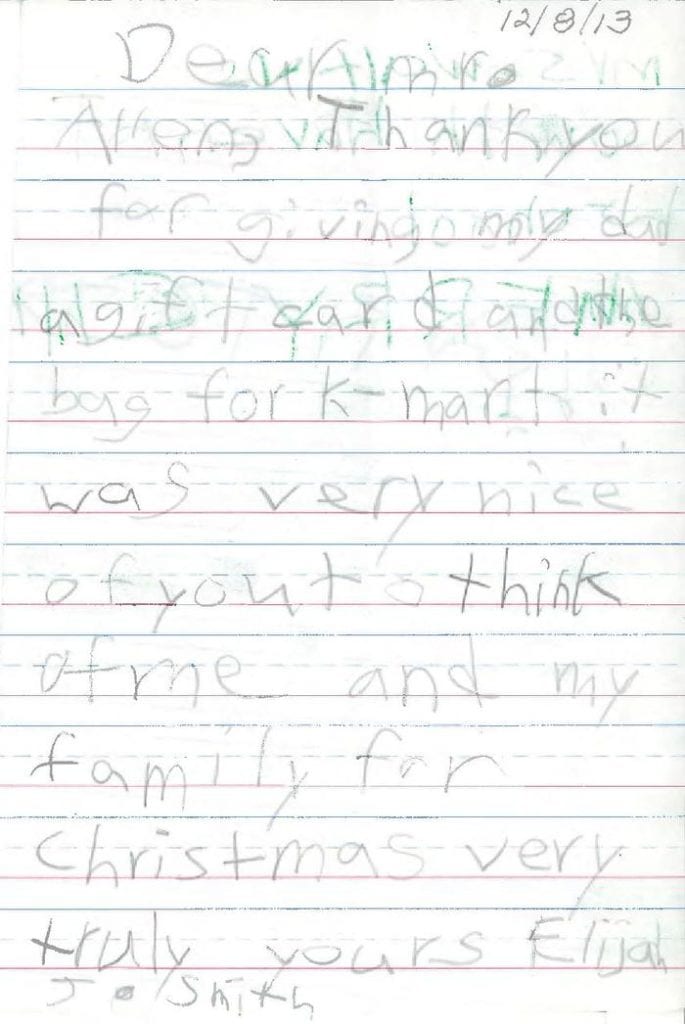 12/8/13
Dear mr.
Allen, Thank you
for giving my dad
a gift card and the
bag for k-mart it
was very nice
of you to think
of me and my
family for
Christmas very
truly yours Elijah
J. Smith